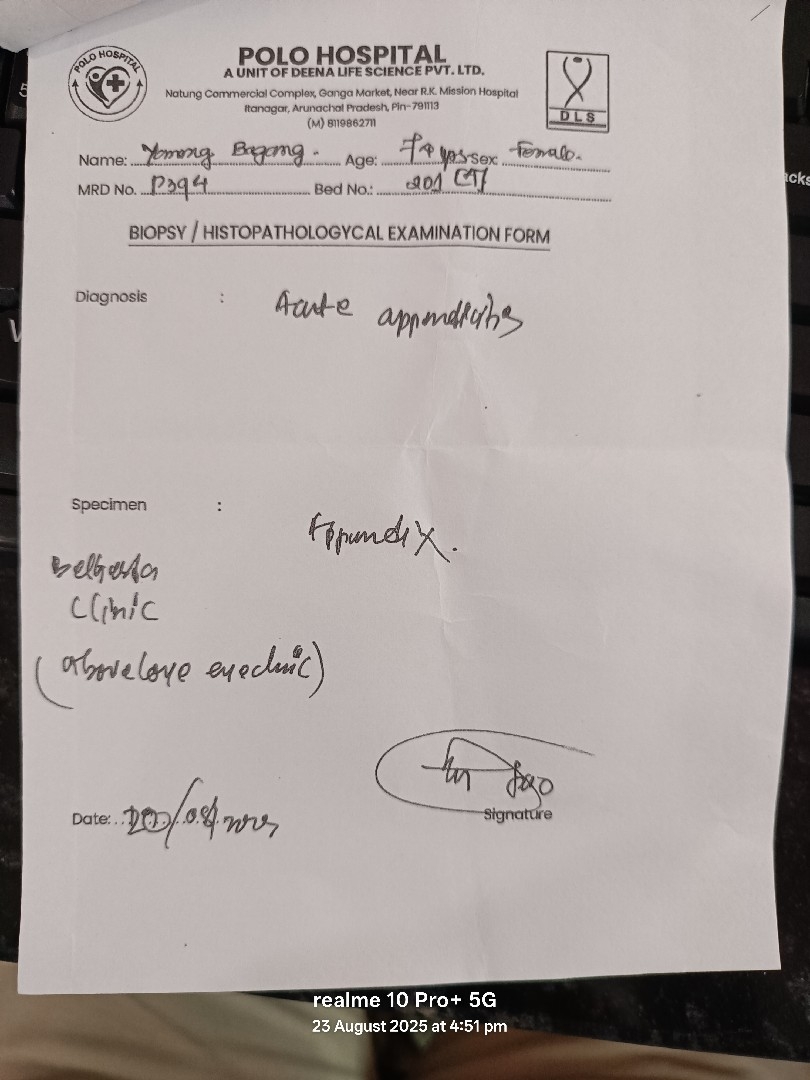 POLO HOSPITAL
POLO HOSPITAL
A UNIT OF DEENA LIFE SCIENCE PVT. LTD.
Natung Commercial Complex, Ganga Market, Near R.K. Mission Hospital
Itanagar, Arunachal Pradesh, Pin-791113
(M) 8119862711
DLS
Name: Yomong Bagang. Age: yrs Sex: Female.
MRD No. P394 Bed No.: 201
BIOPSY / HISTOPATHOLOGYCAL EXAMINATION FORM
Diagnosis : Acute appendicitis
Specimen : Appendix.
Clinic
(above eye clinic)
Signature
Date: 20/08/2025
realme 10 Pro+ 5G
23 August 2025 at 4:51 pm